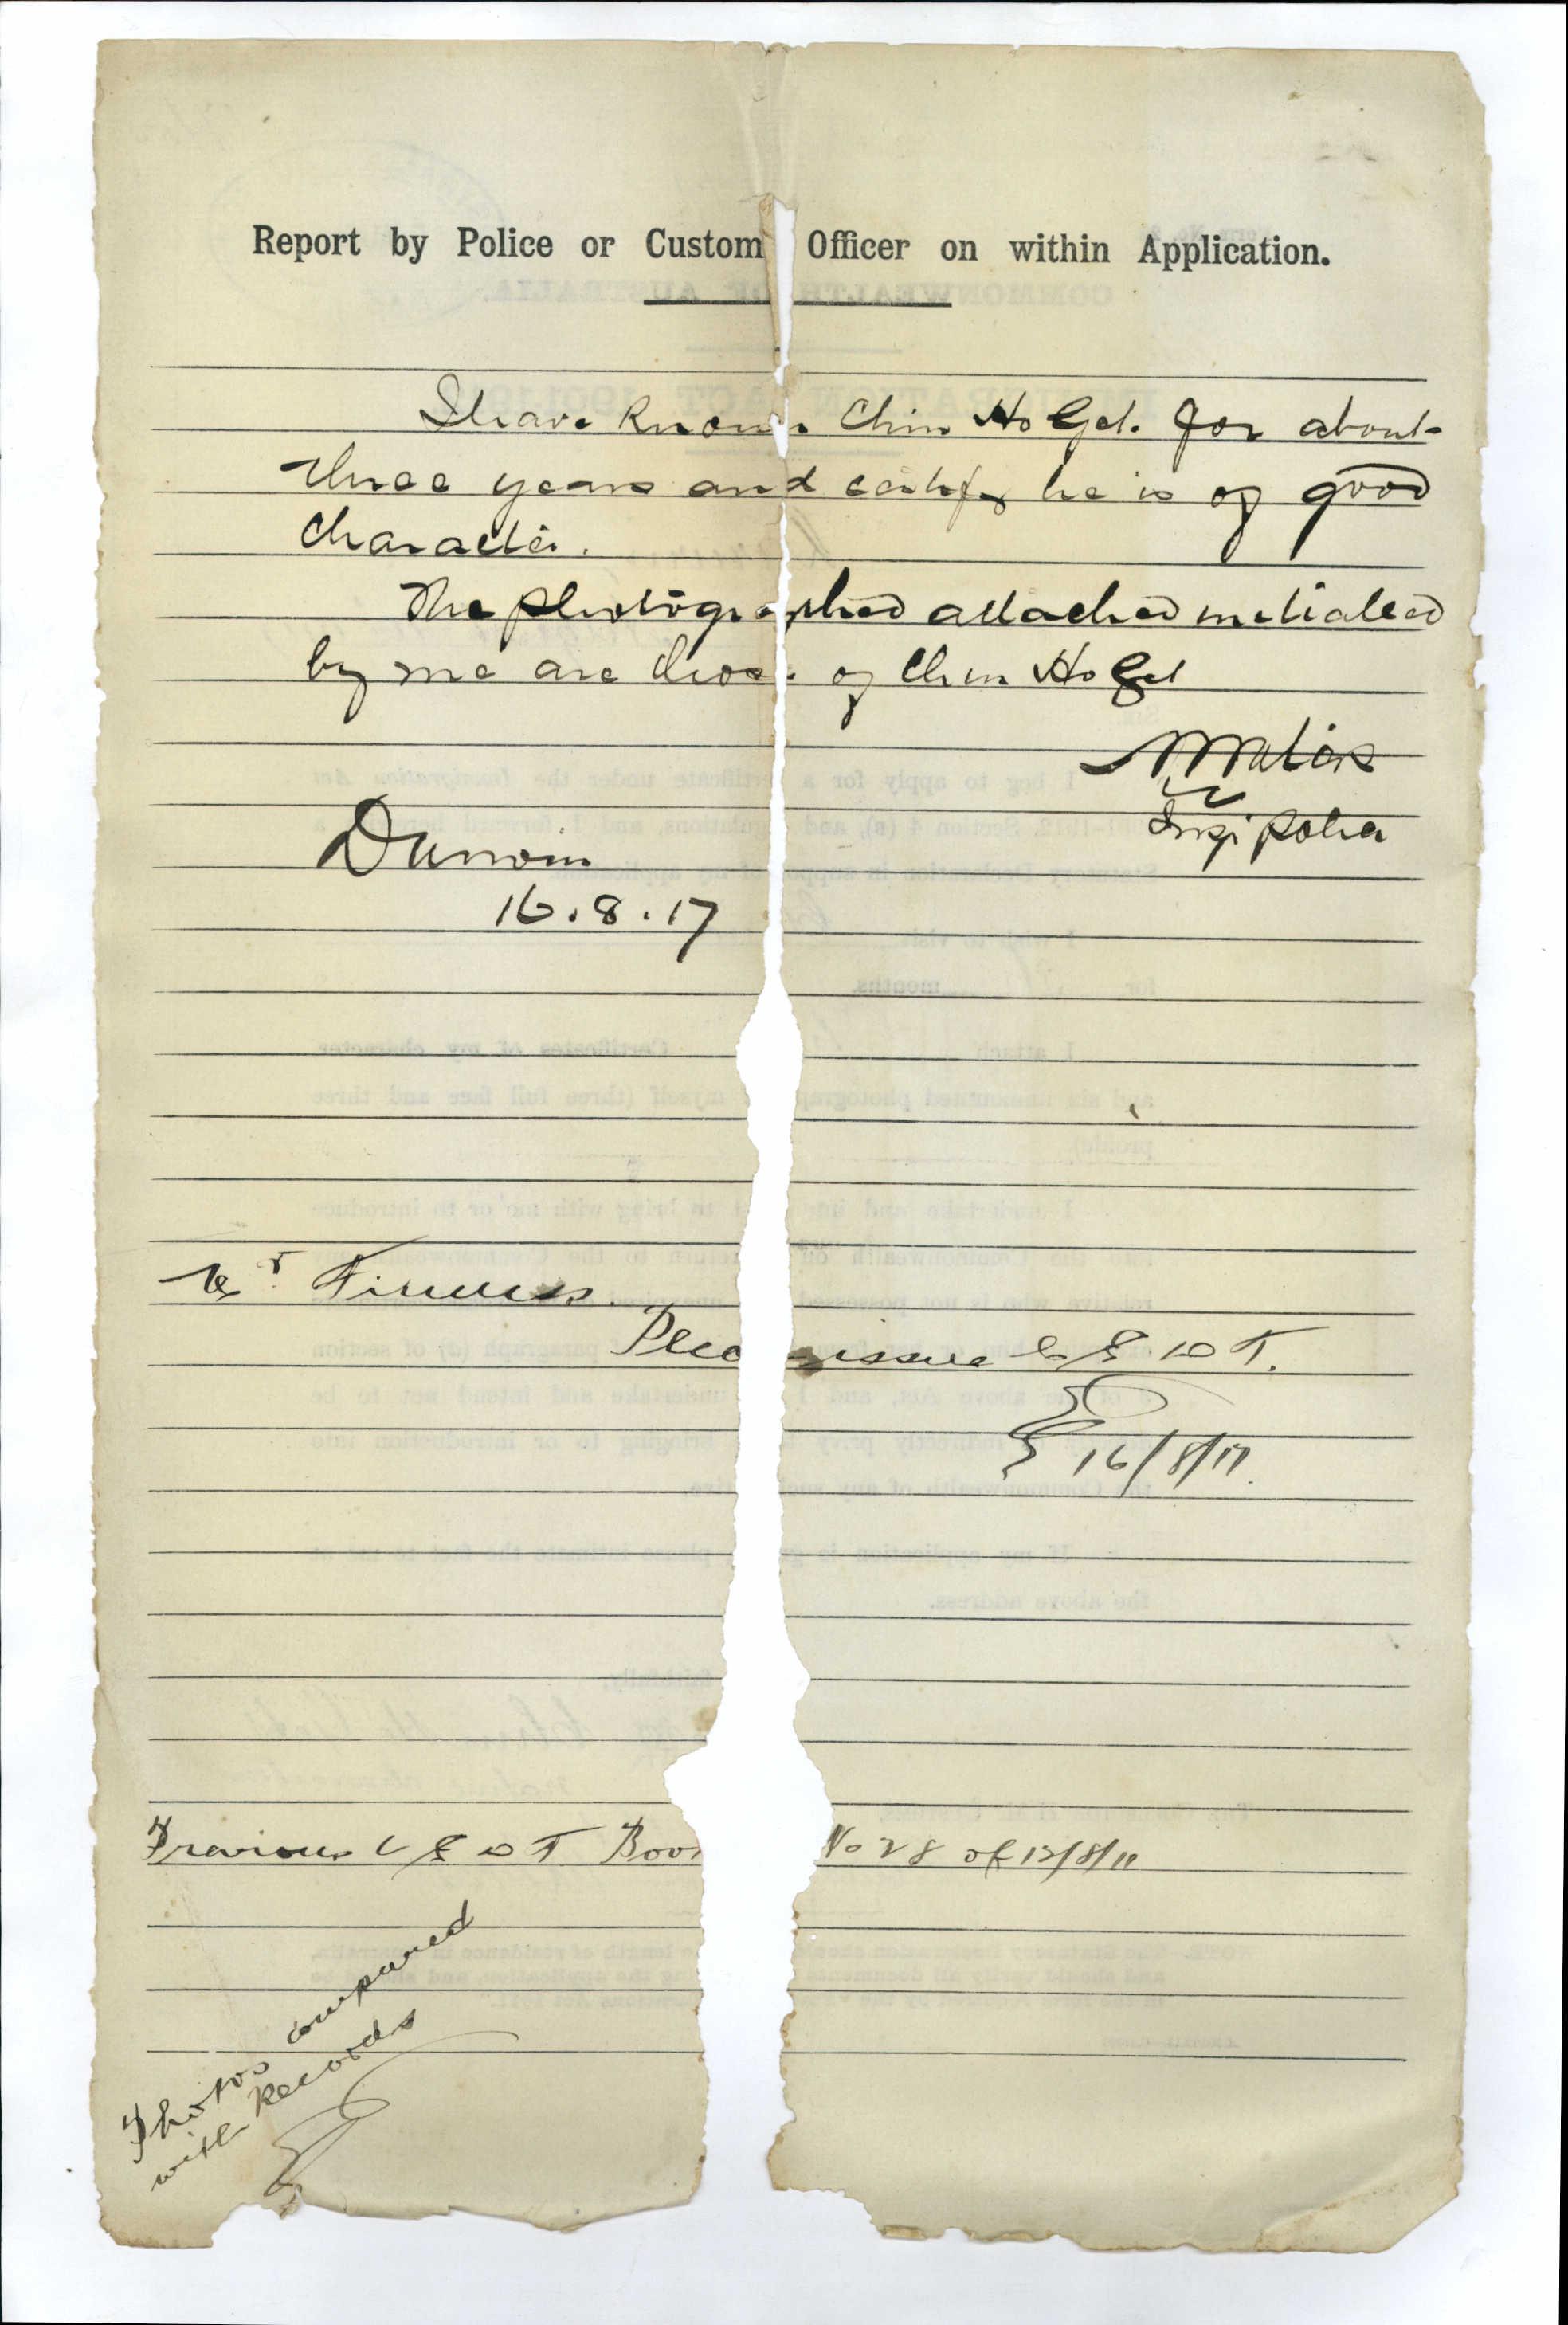 Report by Police or Custom Officer on within Application.
I have known Chin Ho Gel. for about
three years and certify he is of good
character.
The photographed attached initialled
by me are those of Chin Ho Gel
Waters
Insp Police
Darwin
16.8.17
Mr Finniss.
Please issue C E D T.
16/8/17
Previous C E D T Book No 28 of 12/8/11
Photos compared
with Records